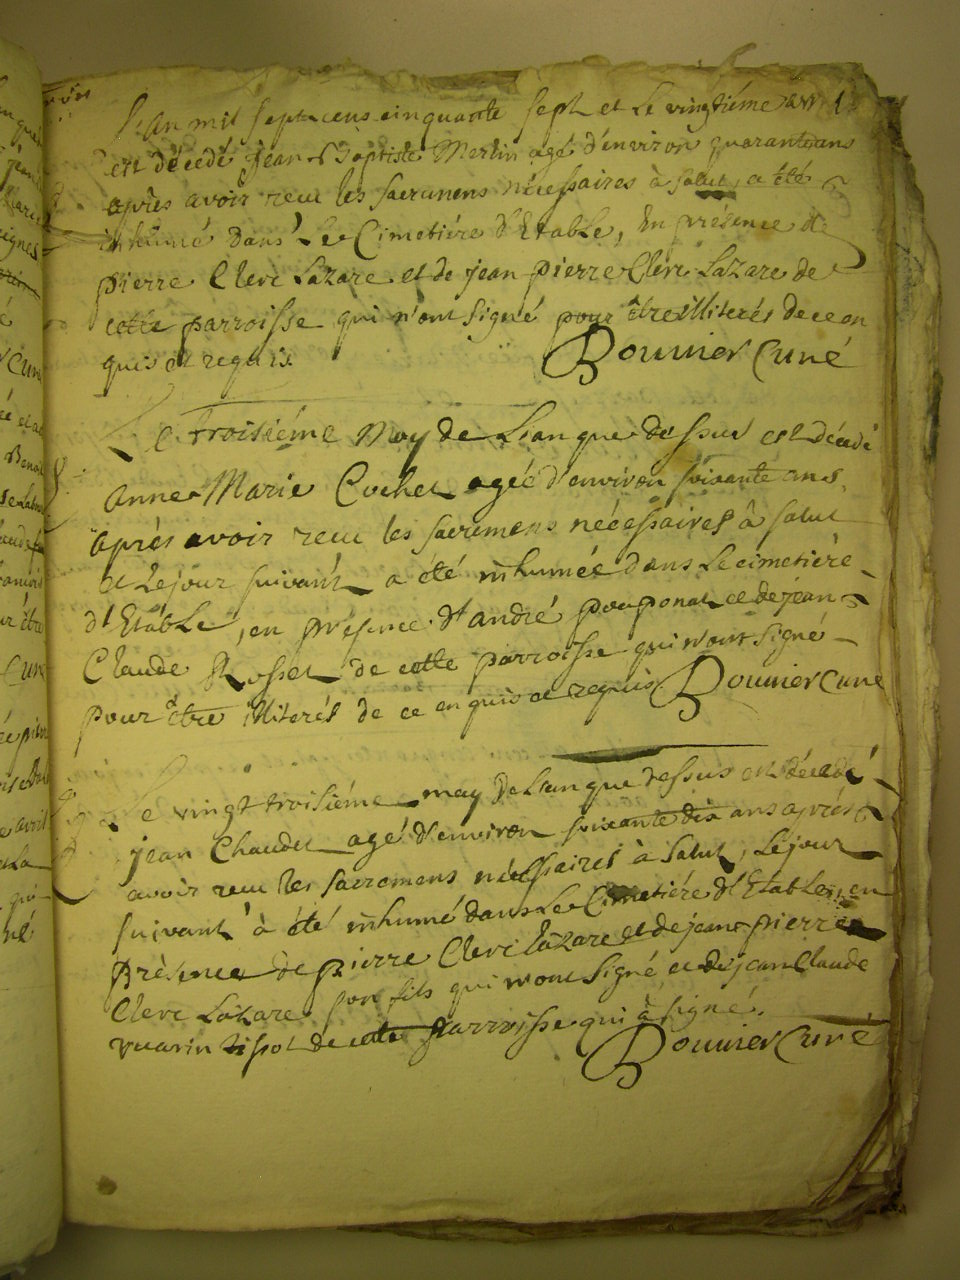 L'an mil sept cens cinquante sept et le vingtiéme avr
est décedé jean Baptiste Merlin agé d'environ quarante ans
aprés avoir receu les sacremens nécessaires à salut, a été
inhumé dans Le Cimetiére d'Etable, En présence de
pierre Clerc Lazare et de jean pierre Clerc Lazare de
cette parroisse qui n'ont signé pour être illiterés de ce en
quis et requis. Bouvier Curé
Le troisiéme May de L'an que dessus est décedé
Anne Marie Cochet agée d'environ soixante ans,
aprés avoir receu les sacremens nécessaires à salut
et Le jour suivant a été inhumée dans Le cimetiére
d'Etable, en présence d'andré pouponat et de jean
Claude Rosset de cette parroisse qui n'ont signé
pour être illiterés de ce en quis et requis Bouvier Curé
Le vingt troisiéme may de L'an que dessus est décedé
jean Chaudet agé d'environ soixante dix ans aprés
avoir receu les sacremens nécessaires à salut, Le jour
suivant à été inhumé dans Le Cimetiére d'Etable, en
présence de pierre Clerc Lazare et de jean pierre
Clerc Lazare son fils qui n'ont signé, et de jean Claude
vuarin tissot de cette parroisse qui à signé.
Bouvier Curé